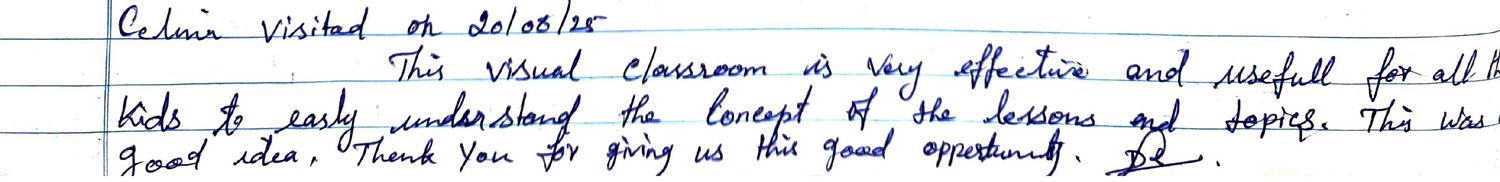 Celinia visited on 20/08/25
This visual classroom is very effective and usefull for all th
kids to easly understand the concept of the lessons and topics. This was
good idea, Thank you for giving us this good oppertunity.